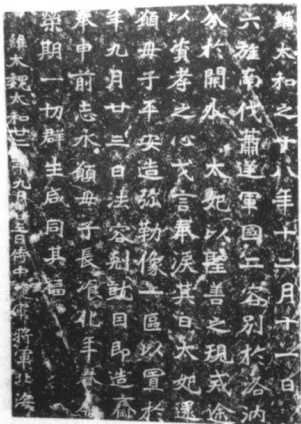 維太和之十八年十二月十一日
六旌南伐蕭逆軍國二容別於洛汭
分於開外太妃以聖善之規戒途
以資孝之心戈言奉淚其日太妃還
願母子平安造弥勒像一區以置於
年九月廿三日法容剋就因即造齋
奉申前志永願母子長瑜化年眷
榮期一切群生咸同其福
維大魏太和廿二年九月廿三日侍中護軍將軍北海